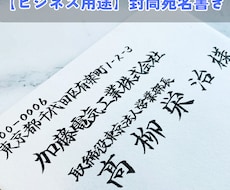 【ビジネス用途】封筒宛名書き
00-0006
東京都千代田区有楽町1-2-3
加藤電気工業株式会社
取締役東京法人営業部長
高柳栄治様